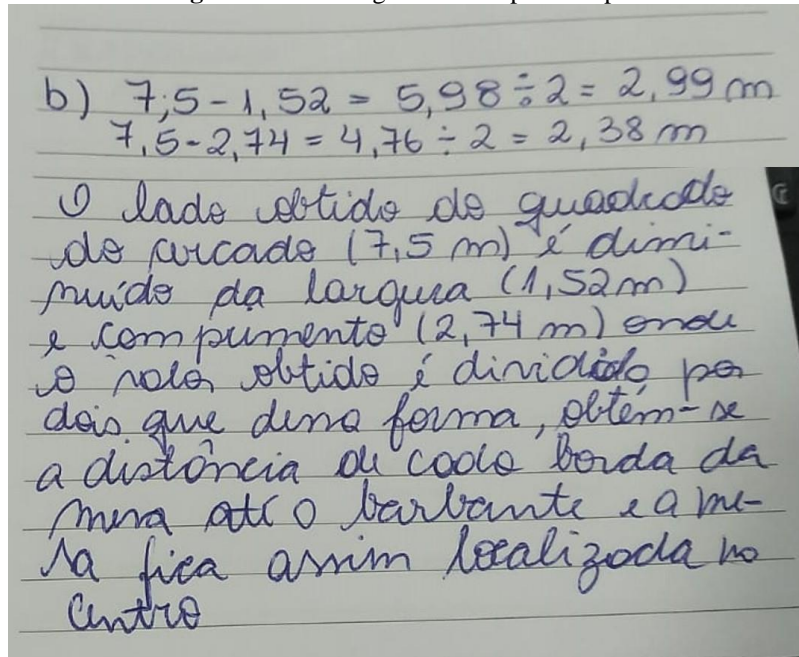 b) 7,5 - 1,52 = 5,98 ÷ 2 = 2,99 m
7,5 - 2,74 = 4,76 ÷ 2 = 2,38 m
O lado obtido do quadrado
do cercado (7,5 m) é dimi-
nuido da largura (1,52 m)
e compumento (2,74 m) onde
o valor obtido é dividido por
dois que dessa forma, obtém-se
a distância de cada borda da
mesa até o barbante e a me-
sa fica assim localizada no
centro